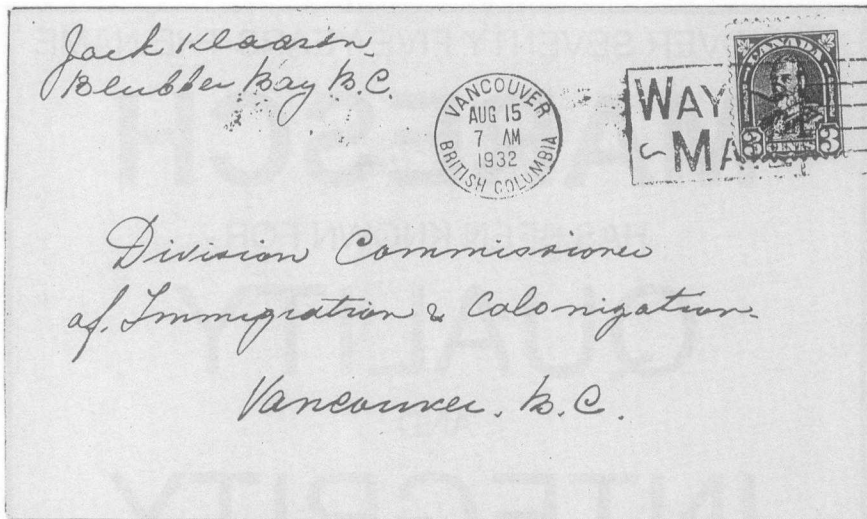 Jack Klaasen.
Blubber Bay B.C.
VANCOUVER
AUG 15
7 AM
1932
BRITISH COLUMBIA
WAY
MA
CANADA
3 CENTS 3
Division Commissioner
of. Immigration & Colonization.
Vancouver. B.C.